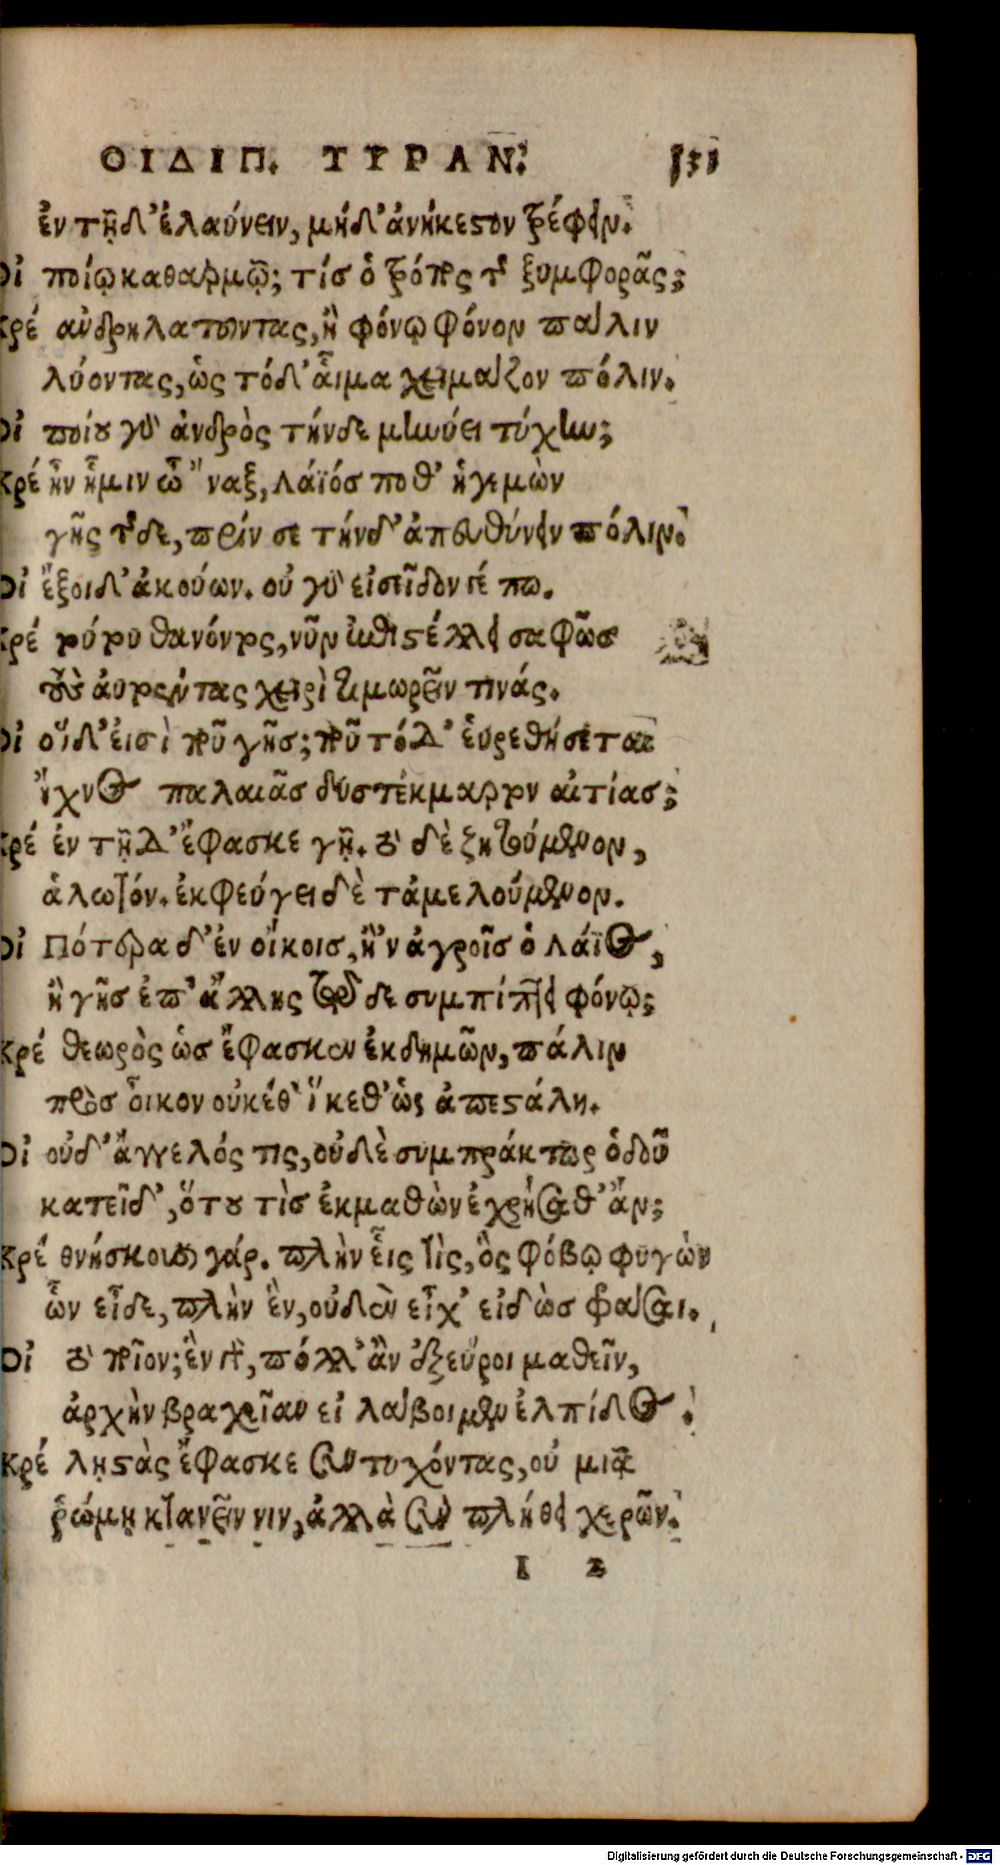 ΟΙΔΙΠ. ΤΥΡΑΝ. 131
ἐν τῇδ' ἐλαύνειν, μήδ' ἀνήκεστον τρέφειν.
Οἰ ποίῳ καθαρμῷ; τίσ ὁ τρόπος τῆς ξυμφορᾶς;
Κρέ ἀνδρηλατοῦντας, ἢ φόνῳ φόνον πάλιν
λύοντας, ὡς τόδ' αἷμα χειμάζον πόλιν.
Οἰ ποίου γὰρ ἀνδρὸς τήνδε μηνύει τύχην;
Κρέ ἦν ἡμιν ὦ "ναξ, Λάϊόσ ποθ' ἡγεμὼν
γῆς τῆσδε, πρίν σε τήνδ' ἀπευθύνειν πόλιν.
Οἰ ἔξοιδ' ἀκούων. οὐ γὰρ εἰσεῖδον γέ πω.
Κρέ τούτου θανόντος, νῦν ἐπιστέλλει σαφῶσ
τοὺς αὐτοέντας χειρὶ τιμωρεῖν τινάς.
Οἰ οἵδ' εἰσὶ ποῦ γῆσ; ποῦ τόδ' εὑρεθήσεται
ἴχνος παλαιᾶσ δυστέκμαρτον αἰτίας;
Κρέ ἐν τῇδ' ἔφασκε γῇ. τὸ δὲ ζητούμενον,
ἁλωτόν. ἐκφεύγει δὲ τἀμελούμενον.
Οἰ Πότερα δ' ἐν οἴκοισ, ἢ 'ν ἀγροῖσ ὁ Λάϊος,
ἢ γῆσ ἐπ' ἄλλης τῷδε συμπίπτει φόνῳ;
Κρέ θεωρὸς ὡσ ἔφασκεν ἐκδημῶν, πάλιν
πρὸσ οἶκον οὐκέθ' ἵκεθ' ὡς ἀπεστάλη.
Οἰ οὐδ' ἄγγελός τις, οὐδὲ συμπράκτωρ ὁδοῦ
κατεῖδ', ὅτου τὶσ ἐκμαθὼν ἐχρήσαθ' ἄν;
Κρέ θνήσκουσι γάρ. πλὴν εἷς τὶς, ὃς φόβῳ φυγὼν
ὧν εἶδε, πλὴν ἓν, οὐδὲν εἶχ' εἰδὼσ φράσαι.
Οἰ τὸ ποῖον; ἓν γὰρ, πόλλ' ἂν ἐξεύροι μαθεῖν,
ἀρχὴν βραχεῖαν εἰ λάβοιμεν ἐλπίδος.
Κρέ λῃστὰς ἔφασκε συντυχόντας, οὐ μιᾷ
ῥώμῃ κτανεῖν νιν, ἀλλὰ σὺν πλήθει χερῶν.
I 2
Digitalisierung gefördert durch die Deutsche Forschungsgemeinschaft - DFG